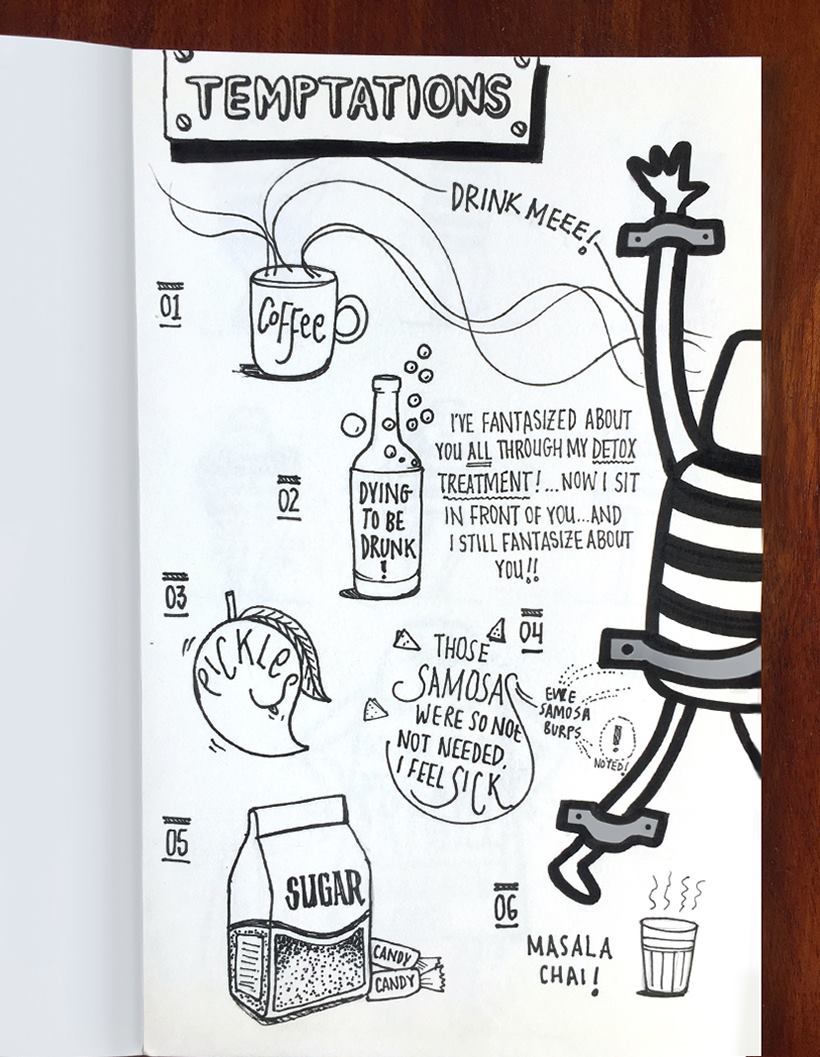 TEMPTATIONS
DRINK MEEE!
01
COFFEE
02
DYING
TO BE
DRUNK
!
I'VE FANTASIZED ABOUT
YOU ALL THROUGH MY DETOX
TREATMENT! ...NOW I SIT
IN FRONT OF YOU...AND
I STILL FANTASIZE ABOUT
YOU!!
03
PICKLES
04
THOSE
SAMOSAS
WERE SO NOT
NOT NEEDED.
I FEEL SICK
SAMOSA
BURPS
!
NOTED!
05
SUGAR
CANDY
CANDY
06
MASALA
CHAI!